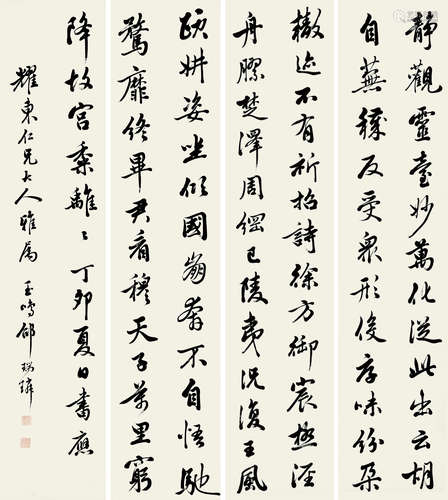 靜觀靈臺妙萬化從此出云胡
自蕪穢反受衆形役厚味份朵
轍迹不有祈招詩徐方御宸極涇
舟膠楚澤周綱已陵夷況復王風
頤妍姿坐傾國崩奔不自悟馳
騖靡終畢君看穆天子萬里窮
降故宮黍離〻丁卯夏日書應
耀東仁兄大人雅属 玉鳴